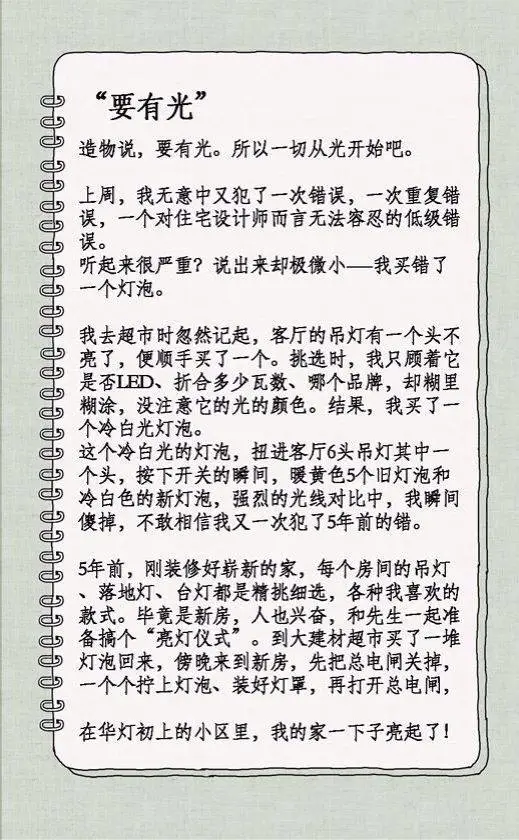 “要有光”
造物说，要有光。所以一切从光开始吧。
上周，我无意中又犯了一次错误，一次重复错
误，一个对住宅设计师而言无法容忍的低级错
误。
听起来很严重？说出来却极微小——我买错了
一个灯泡。
我去超市时忽然记起，客厅的吊灯有一个头不
亮了，便顺手买了一个。挑选时，我只顾着它
是否LED、折合多少瓦数、哪个品牌，却糊里
糊涂，没注意它的光的颜色。结果，我买了一
个冷白光灯泡。
这个冷白光的灯泡，扭进客厅6头吊灯其中一
个头，按下开关的瞬间，暖黄色5个旧灯泡和
冷白色的新灯泡，强烈的光线对比中，我瞬间
傻掉，不敢相信我又一次犯了5年前的错。
5年前，刚装修好崭新的家，每个房间的吊灯
、落地灯、台灯都是精挑细选，各种我喜欢的
款式。毕竟是新房，人也兴奋，和先生一起准
备搞个“亮灯仪式”。到大建材超市买了一堆
灯泡回来，傍晚来到新房，先把总电闸关掉，
一个个拧上灯泡、装好灯罩，再打开总电闸，
在华灯初上的小区里，我的家一下子亮起了！